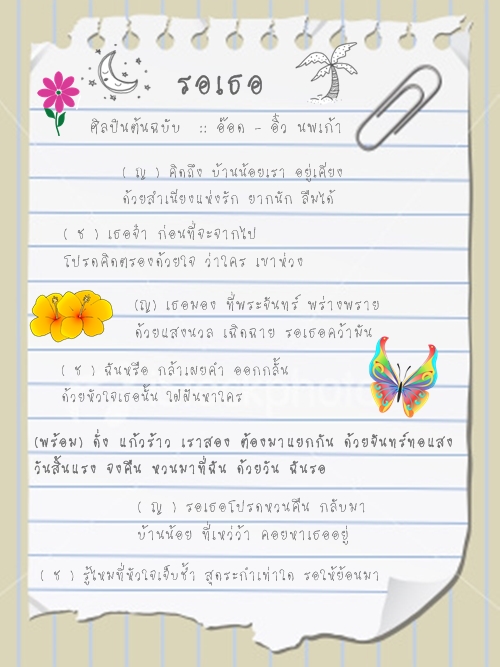 รอเธอ
ศิลปินต้นฉบับ :: อ๊อด - อิ๋ว นพเก้า
( ญ ) คิดถึง บ้านน้อยเรา อยู่เคียง
ด้วยสำเนียงแห่งรัก ยากนัก ลืมได้
( ช ) เธอจ๋า ก่อนที่จะจากไป
โปรดคิดตรองด้วยใจ ว่าใคร เขาห่วง
(ญ) เธอมอง ที่พระจันทร์ พร่างพราย
ด้วยแสงนวล เฉิดฉาย รอเธอคว้ามัน
( ช ) ฉันหรือ กล้าเผยคำ ออกกลั้น
ด้วยหัวใจเธอนั้น ใฝ่ฝันหาใคร
(พร้อม) ดั่ง แก้วร้าว เราสอง ต้องมาแยกกัน ด้วยจันทร์ทอแสง
วันสิ้นแรง จงคืน หวนมาที่ฉัน ด้วยวัน ฉันรอ
( ญ ) รอเธอโปรดหวนคืน กลับมา
บ้านน้อย ที่เหว่ว้า คอยหาเธออยู่
( ช ) รู้ไหมที่หัวใจเจ็บช้ำ สุดระกำเท่าใด รอให้ย้อนมา